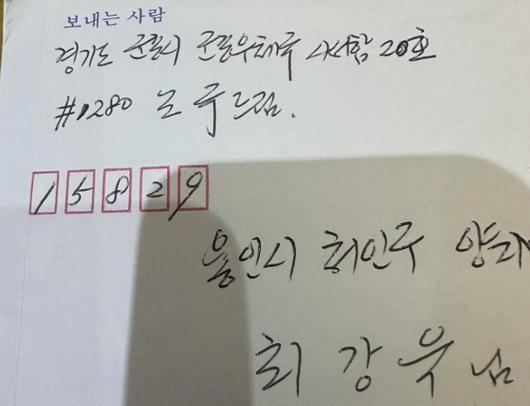 보내는 사람
경기도 군포시 군포우체국 사서함 20호
#1280 조 국 드림.
15829
용인시 처인구 양
최 강 욱 님